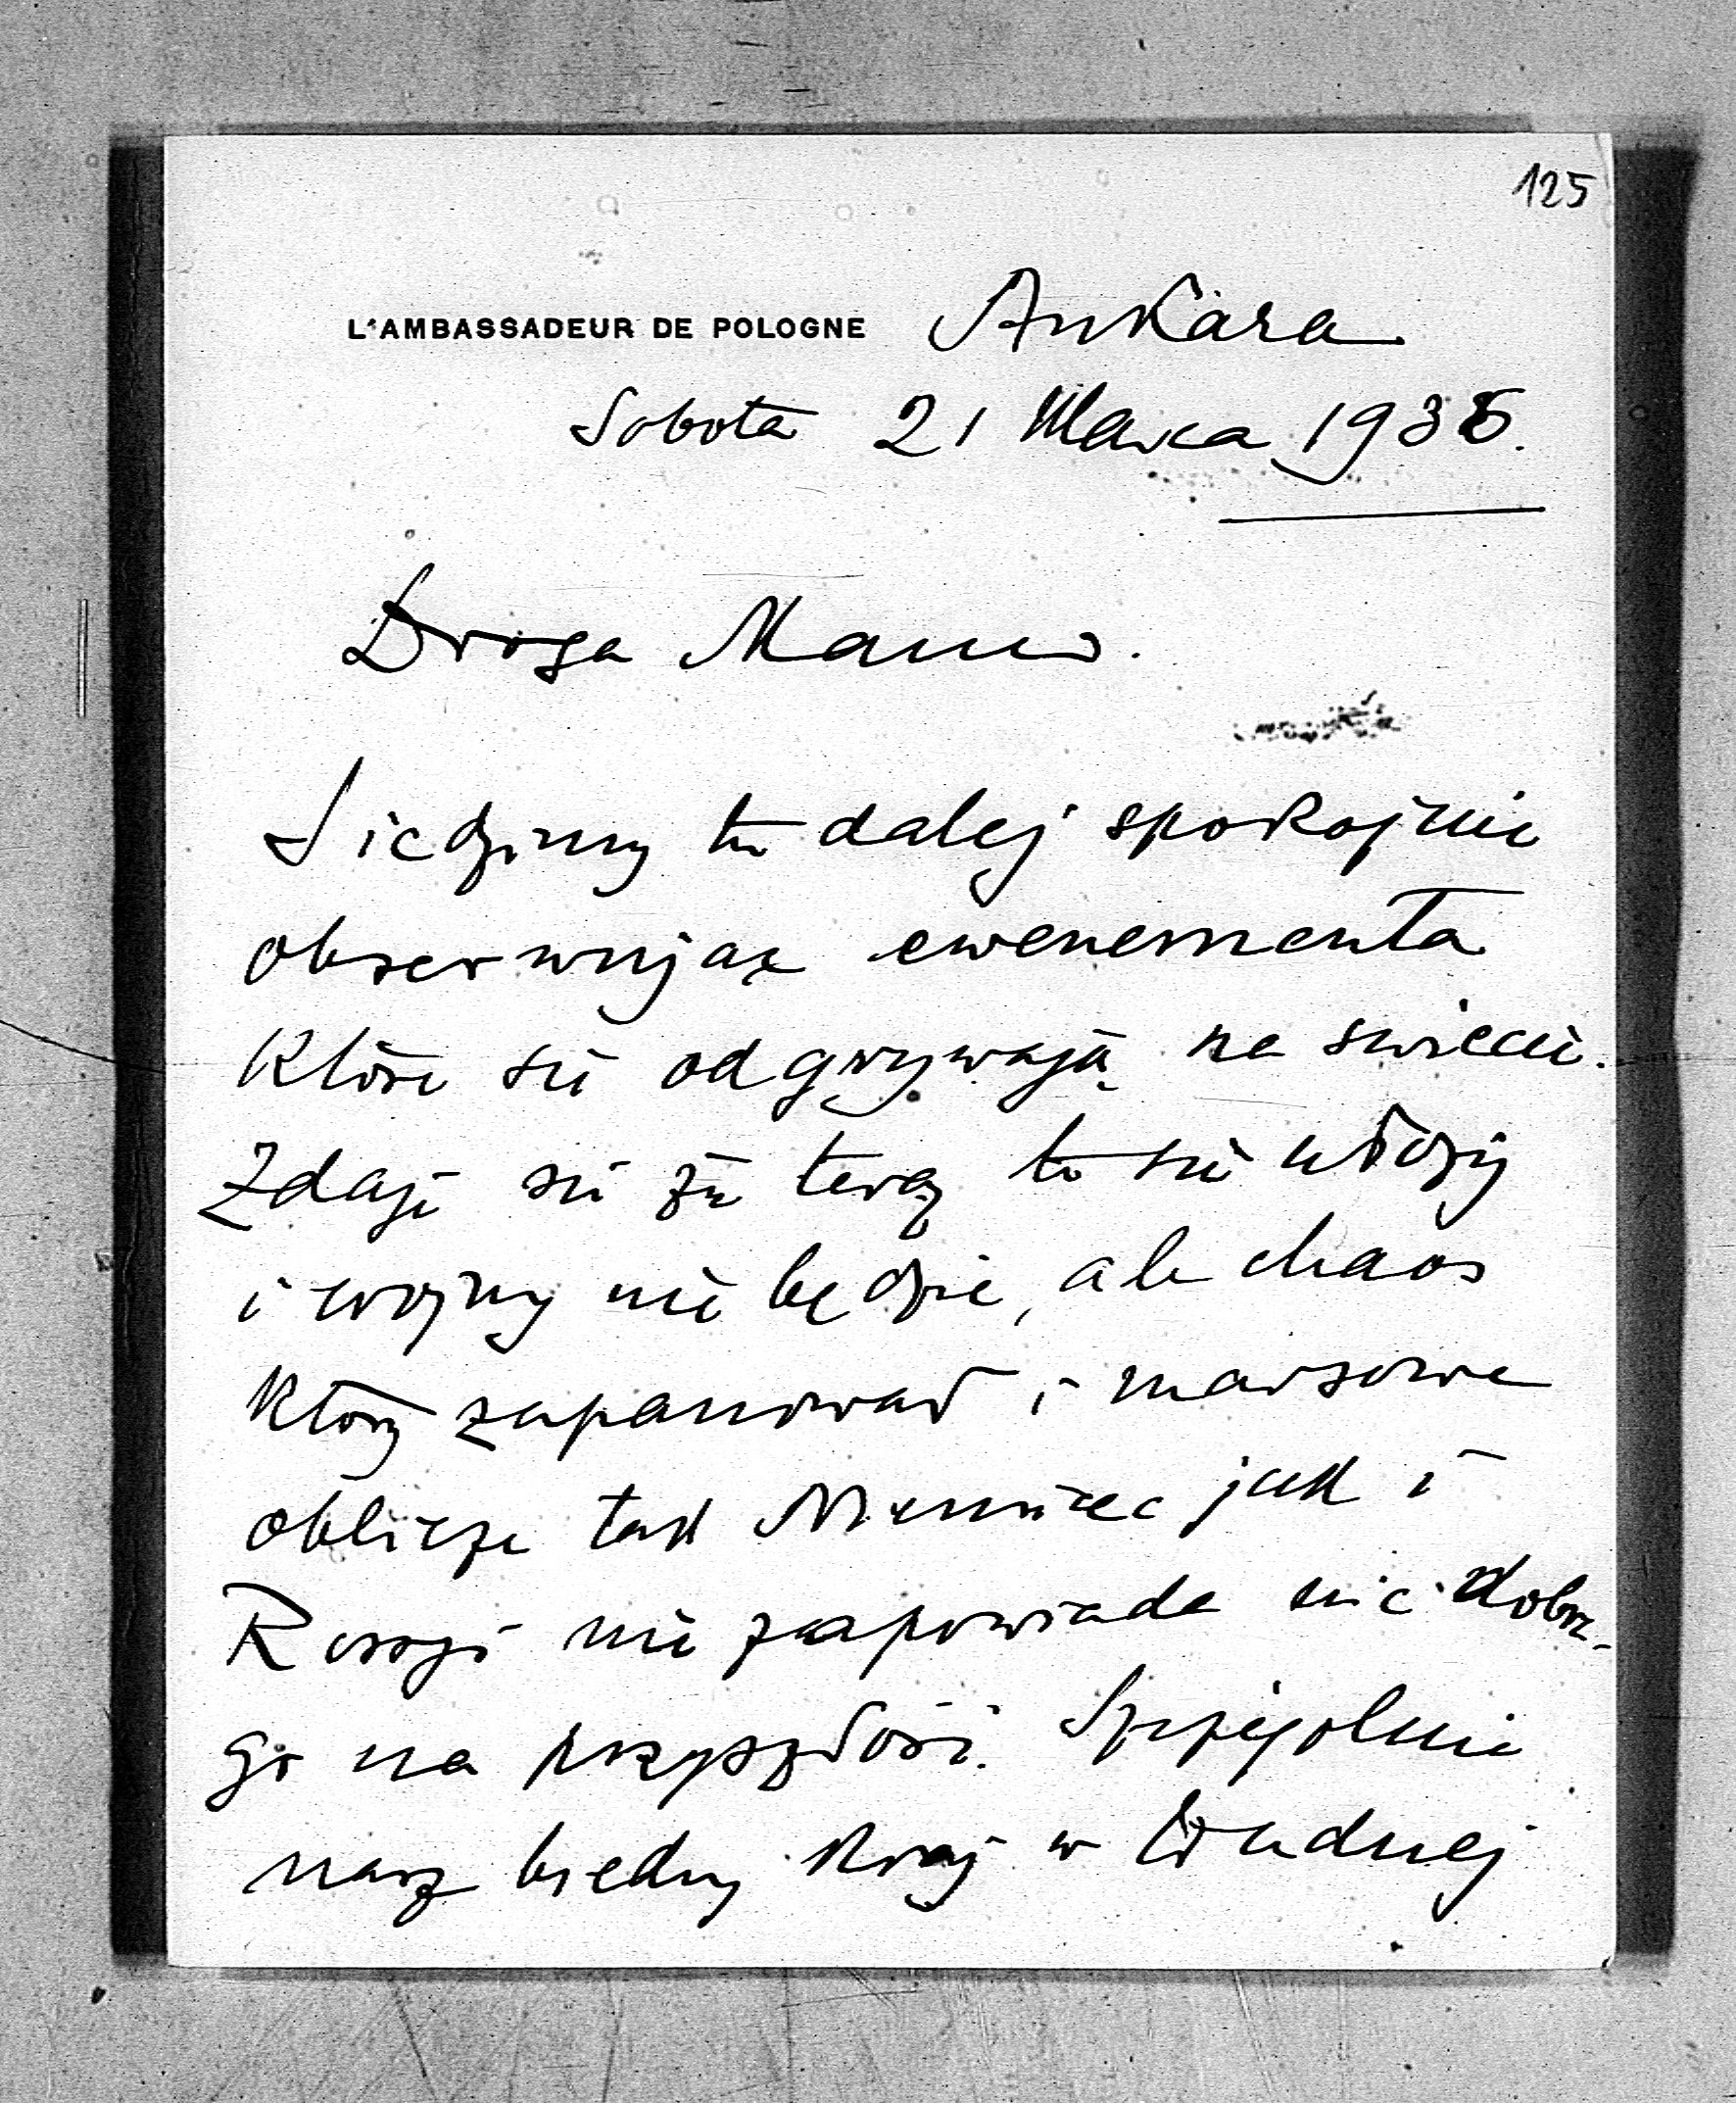 125
L'AMBASSADEUR DE POLOGNE Ankara
Sobota 21 Marca 1936.
Droga Mamo.
Siedzimy tu dalej spokojnie
obserwując ewenementa
które się odgrywają na świecie.
Zdaje się że teraz to się ułoży
i wojny nie będzie, ale chaos
który zapanował i marsowe
oblicze tak Niemiec jak i
Rosyi nie zapowiada nic dobre-
go na przyszłość. Szczególnie
nasz biedny kraj w trudnej